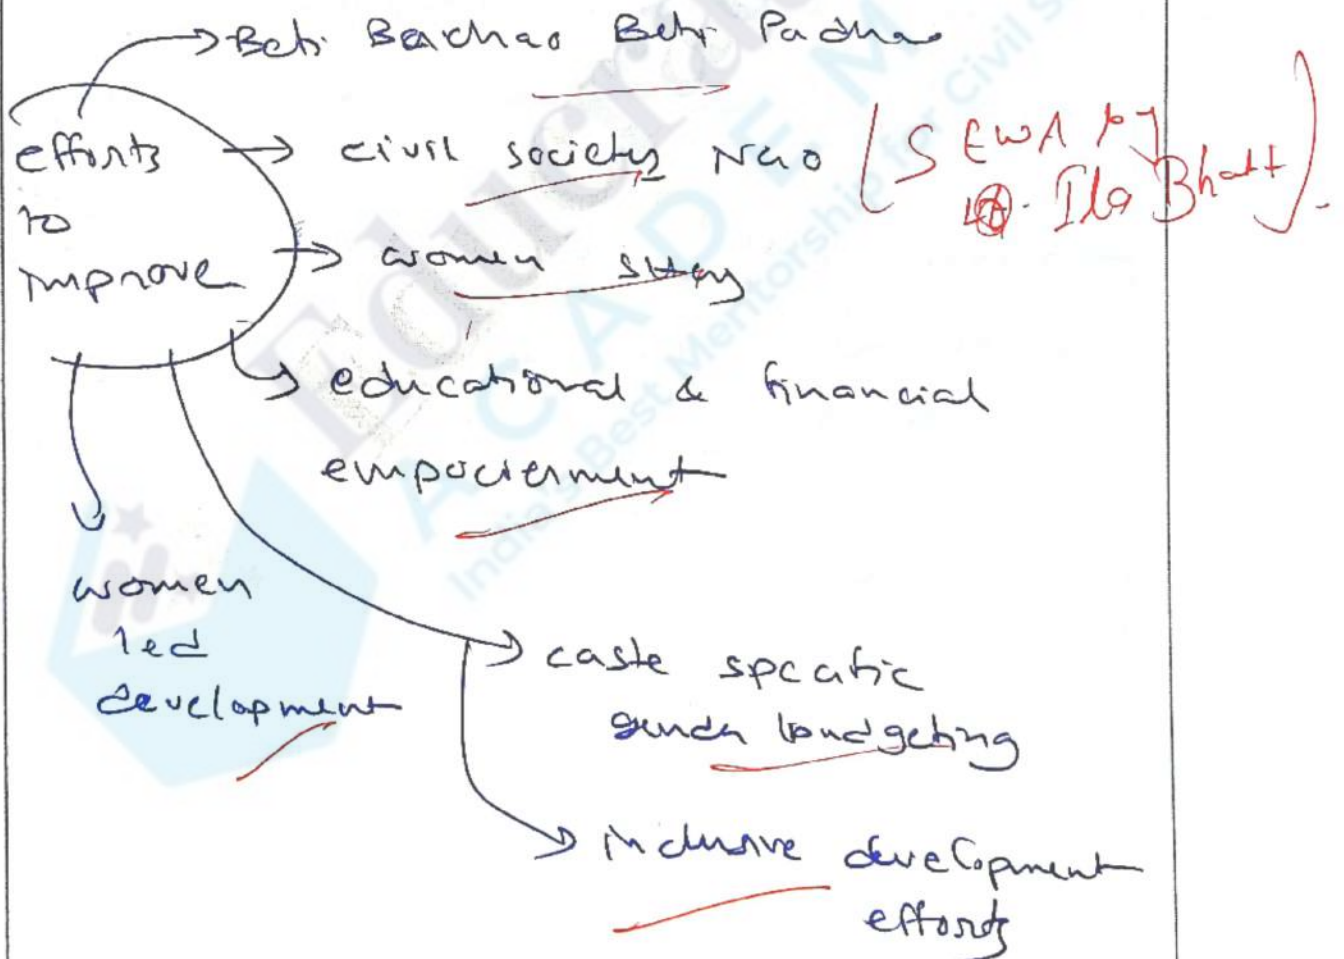 Beti Bachao Beti Padhao
efforts
to
improve
civil society NGO
(SEWA by
Ila Bhatt).
women
educational & financial
empowerment
women
led
development
caste specific
gender budgeting
inclusive development
efforts
Educra
ACADEM
India's Best Mentorship for Civil S